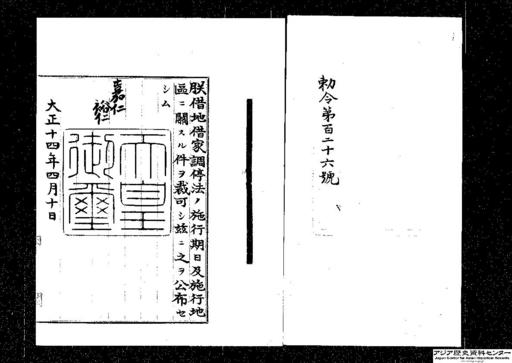 勅令第百二十六號
朕借地借家調停法ノ施行期日及施行地
區ニ關スル件ヲ裁可シ茲ニ之ヲ公布セ
シム
嘉仁
裕仁
天皇
御璽
大正十四年四月十日
アジア歴史資料センター
Japan Center for Asian Historical Records